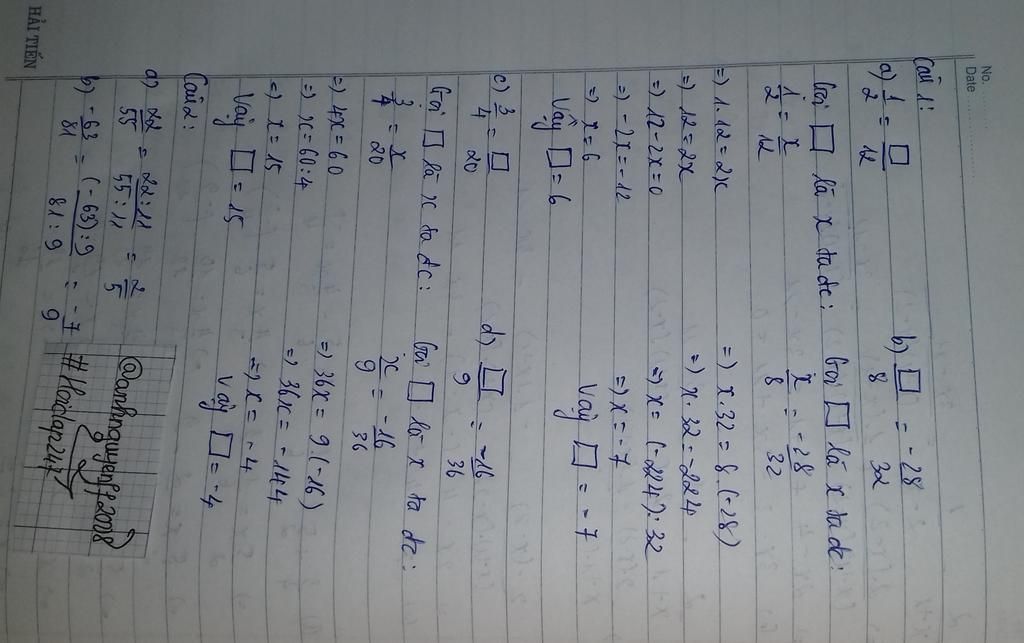 No.
Date
Câu 1:
a) 1/2 = □/12
Gọi □ là x ta đc:
1/2 = x/12
=) 1.12 = 2x
=) 12 = 2x
=) 12 - 2x = 0
=) - 2x = - 12
=) x = 6
Vậy □ = 6
b) □/8 = -28/32
Gọi □ là x ta đc:
x/8 = -28/32
=) x . 32 = 8 . (-28)
=) x . 32 = -224
=) x = (-224) : 32
=) x = - 7
Vậy □ = - 7
c) 3/4 = □/20
Gọi □ là x ta đc:
3/4 = x/20
=) 4x = 60
=) x = 60 : 4
=) x = 15
Vậy □ = 15
d) □/9 = -16/36
Gọi □ là x ta đc:
x/9 = -16/36
=) 36x = 9 . (-16)
=) 36x = - 144
=) x = - 4
Vậy □ = -4
Câu 2:
a) 22/55 = 22 : 11/55 : 11 = 2/5
b) -63/81 = (-63) : 9/81 : 9 = -7/9
@anhnguyenf2008
#Hoidap247
HẢI TIẾN